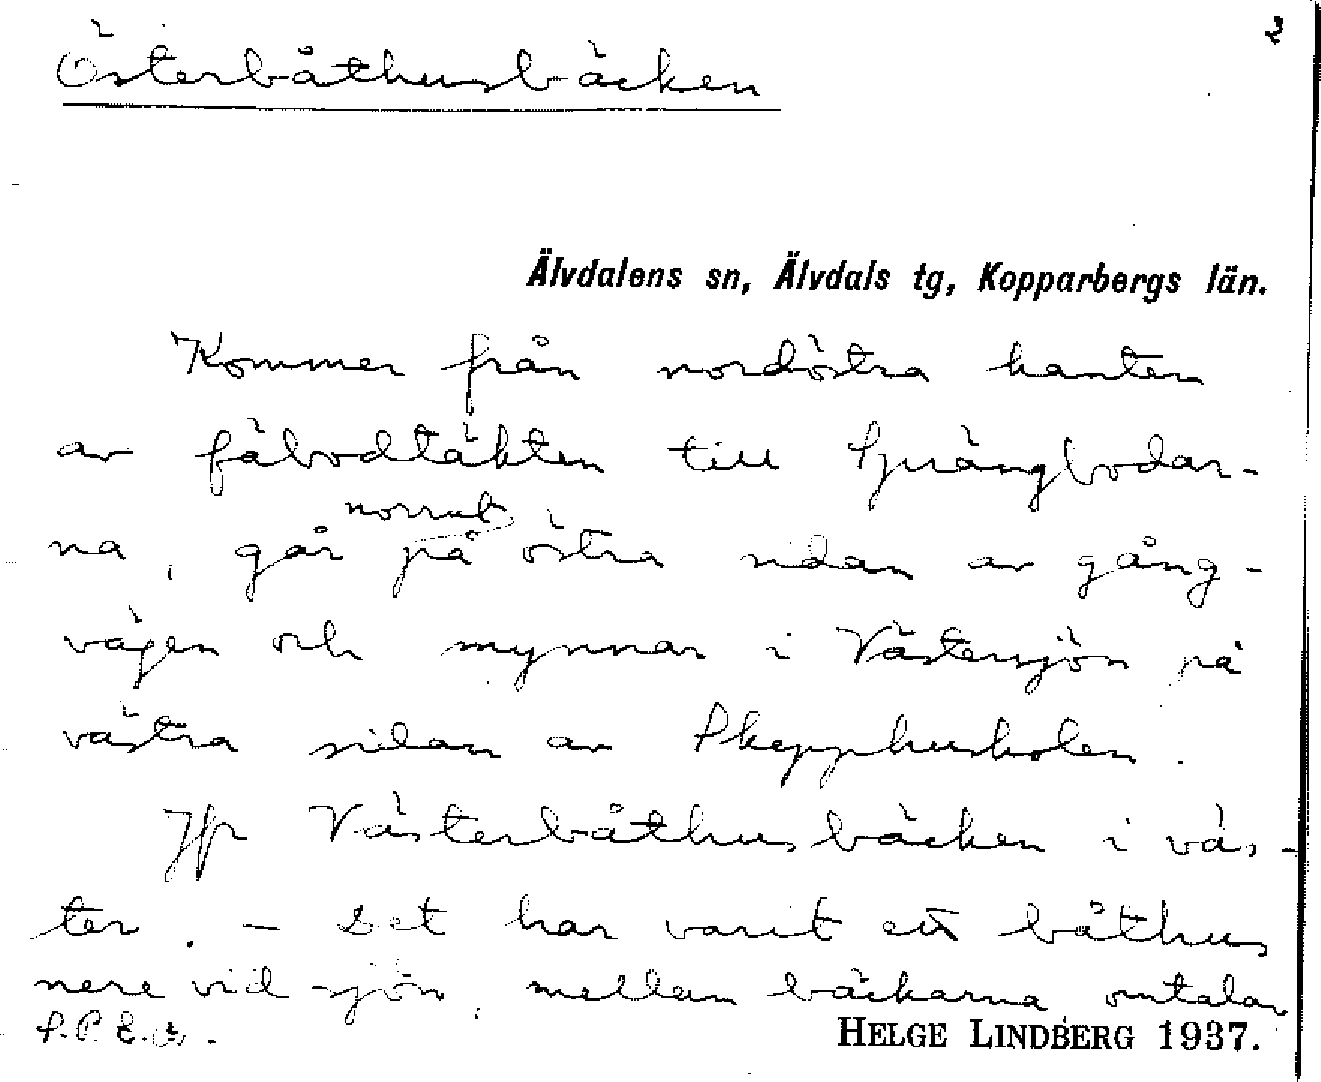 2
Österbåthusbäcken
Älvdalens sn, Älvdals tg, Kopparbergs län.
Kommer från nordöstra kanten
av fäbodtäkten till Gjrängbodar-
norrut
na, går på östra sidan av gång-
vägen och mynnar i Västersjön på
västra sidan av Skepphusholen.
Jfr Västerbåthusbäcken i väs-
ter. - Det har varit ett båthus
nere vid sjön mellan bäckarna omtalar
S. P. E. A.
HELGE LINDBERG 1937.